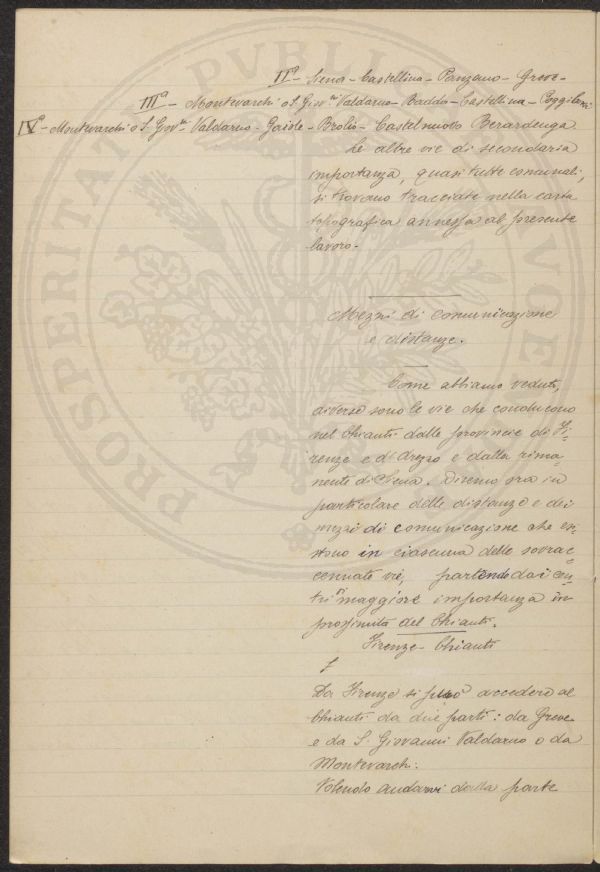 IIª - Siena - Castellina - Panzano - Greve -
IIIª - Montevarchi o S. Giovⁿⁱ Valdarno - Radda - Castellina - Poggibonsi
IVª - Montevarchi o S. Govⁿⁱ Valdarno - Gaiole - Brolio - Castelnuovo Berardenga
Le altre vie di secondaria
importanza, quasi tutte comunali,
si trovano tracciate nella carta
topografica annessa al presente
lavoro -
Mezzi di comunicazione
e distanze.
Come abbiamo veduto,
diverse sono le vie che conducono
nel Chianti dalle provincie di Fi-
renze e d'Arezzo e dalla rima-
nente di Siena. Diremo ora in
particolare delle distanze e dei
mezzi di comunicazione che esi-
stono in ciascuna delle sovrac-
cennate vie, partendo dai cen-
tri maggiore importanza in
prossimità del Chianti.
Firenze - Chianti
Da Firenze si può accedere al
Chianti da due parti: da Greve
e da S. Giovanni Valdarno o da
Montevarchi.
Volendo andarvi dalla parte
PROSPERITAT PVBLIC